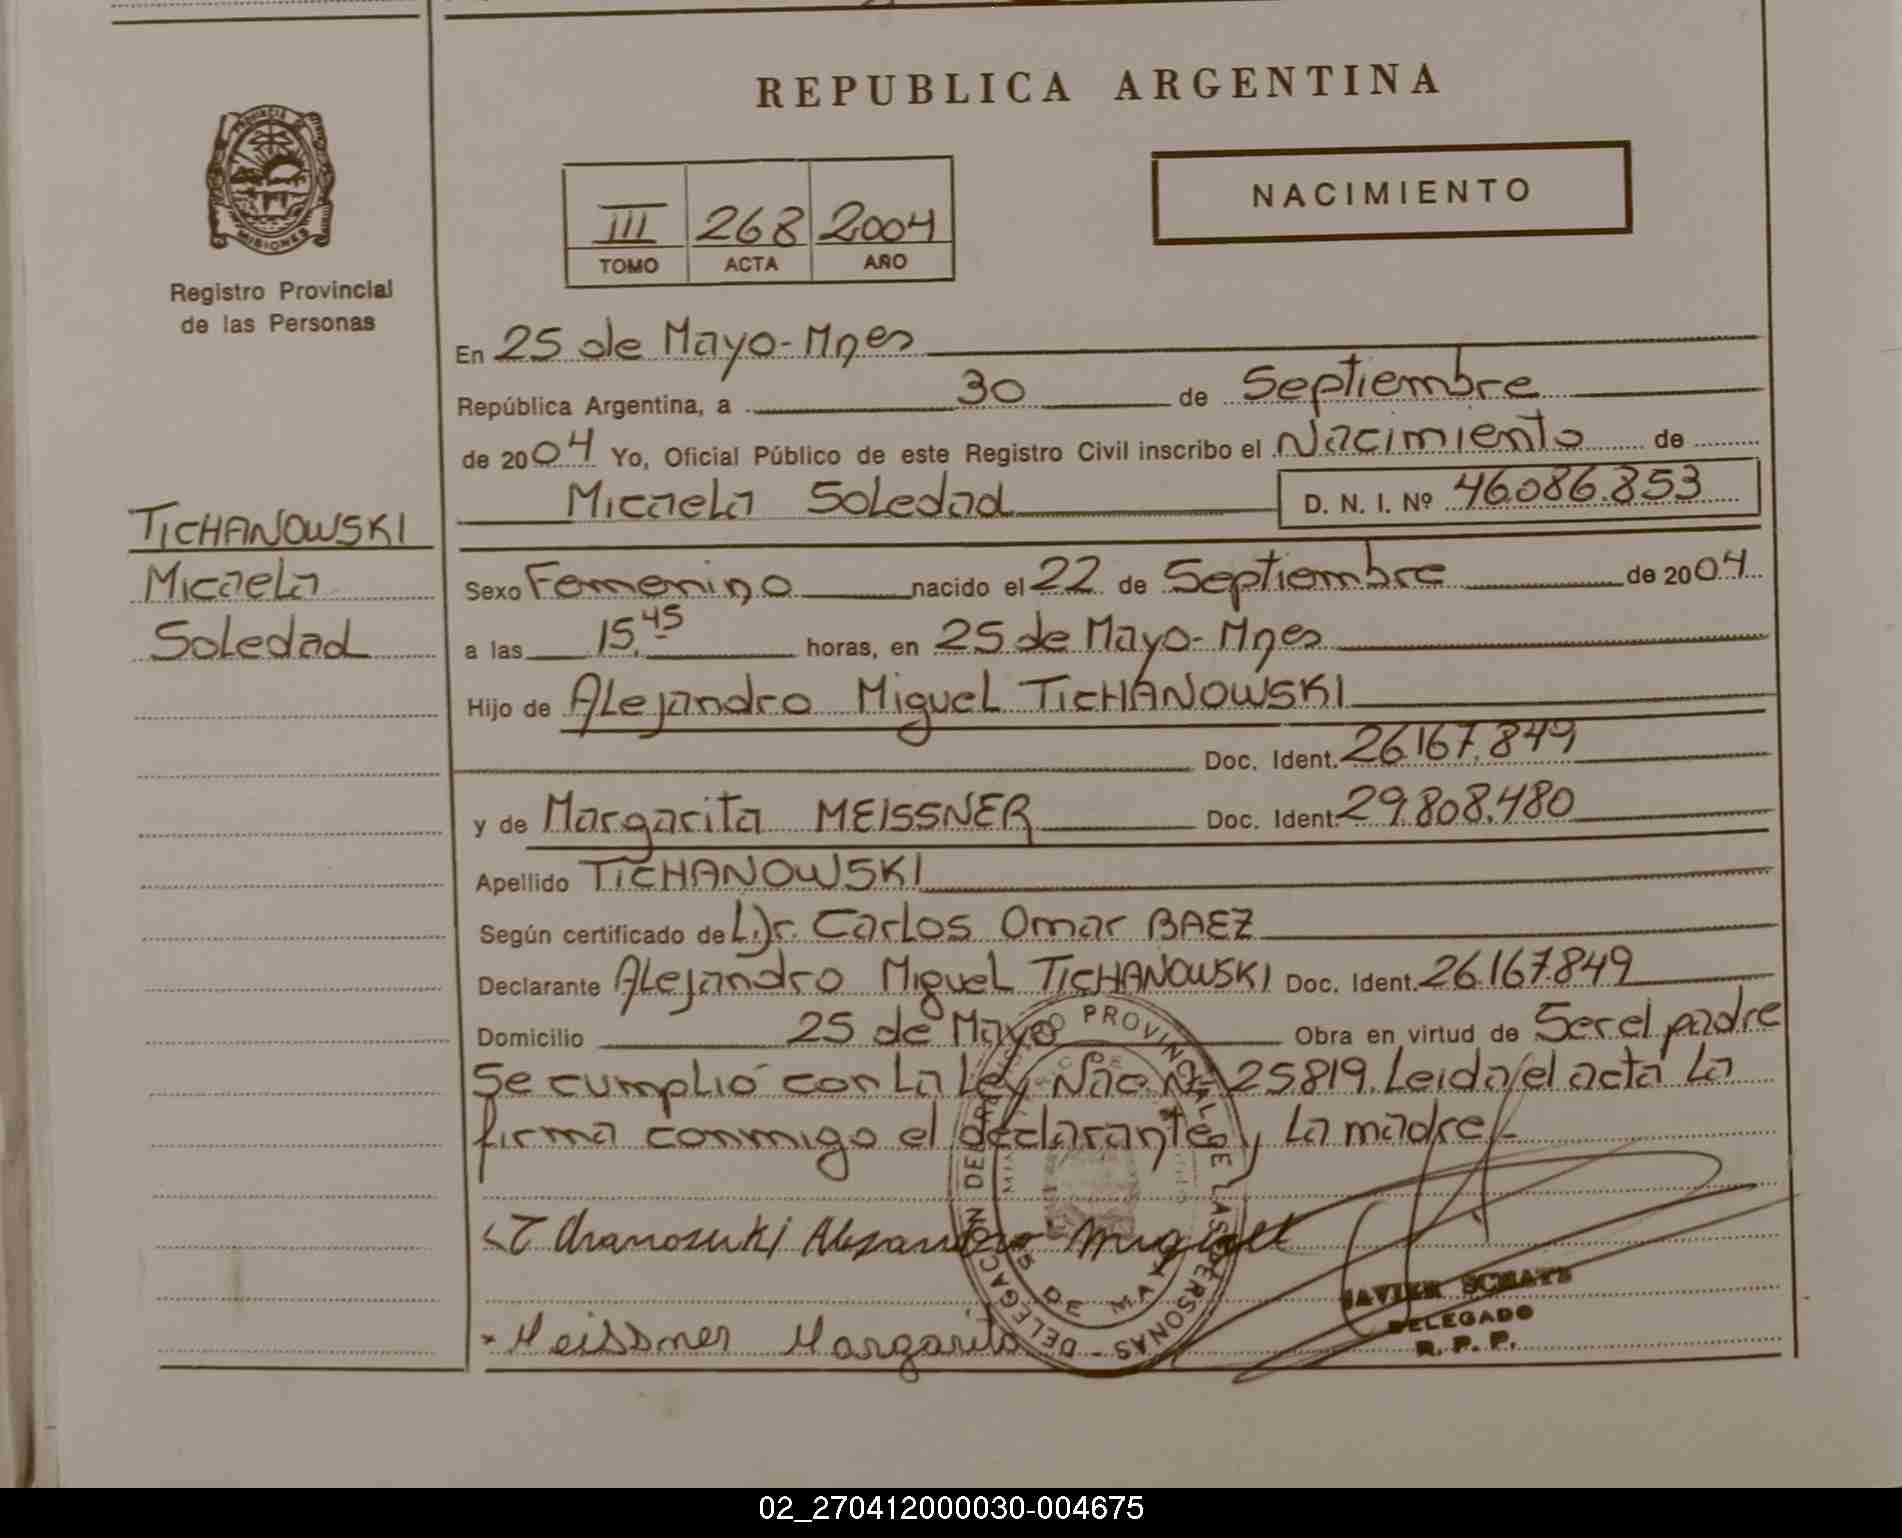 REPUBLICA ARGENTINA
PROVINCIA DE
MISIONES
Registro Provincial
de las Personas
NACIMIENTO
III 268 2004
TOMO ACTA AÑO
En 25 de Mayo-Mnes
República Argentina, a 30 de Septiembre
de 2004 Yo, Oficial Público de este Registro Civil inscribo el Nacimiento de
Micaela Soledad D. N. I. Nº 46.086.853
TICHANOWSKI
Micaela
Soledad
Sexo Femenino nacido el 22 de Septiembre de 2004
a las 15,45 horas, en 25 de Mayo-Mnes
Hijo de Alejandro Miguel TICHANOWSKI
Doc. Ident. 26.167.849
y de Margarita MEISSNER Doc. Ident. 29.808.480
Apellido TICHANOWSKI
Según certificado de Dr. Carlos Omar BAEZ
Declarante Alejandro Miguel TICHANOWSKI Doc. Ident. 26.167.849
Domicilio 25 de Mayo Obra en virtud de Ser el padre
Se cumplió con la Ley Nac. Nº 25819. Leida el acta la
firma conmigo el declarante y la madre.-
DELEGACION DEL REGISTRO PROVINCIAL DE LAS PERSONAS -
25 DE MAYO
Meissner Margarita
JAVIER
DELEGADO
R. P. P.
02_270412000030-004675